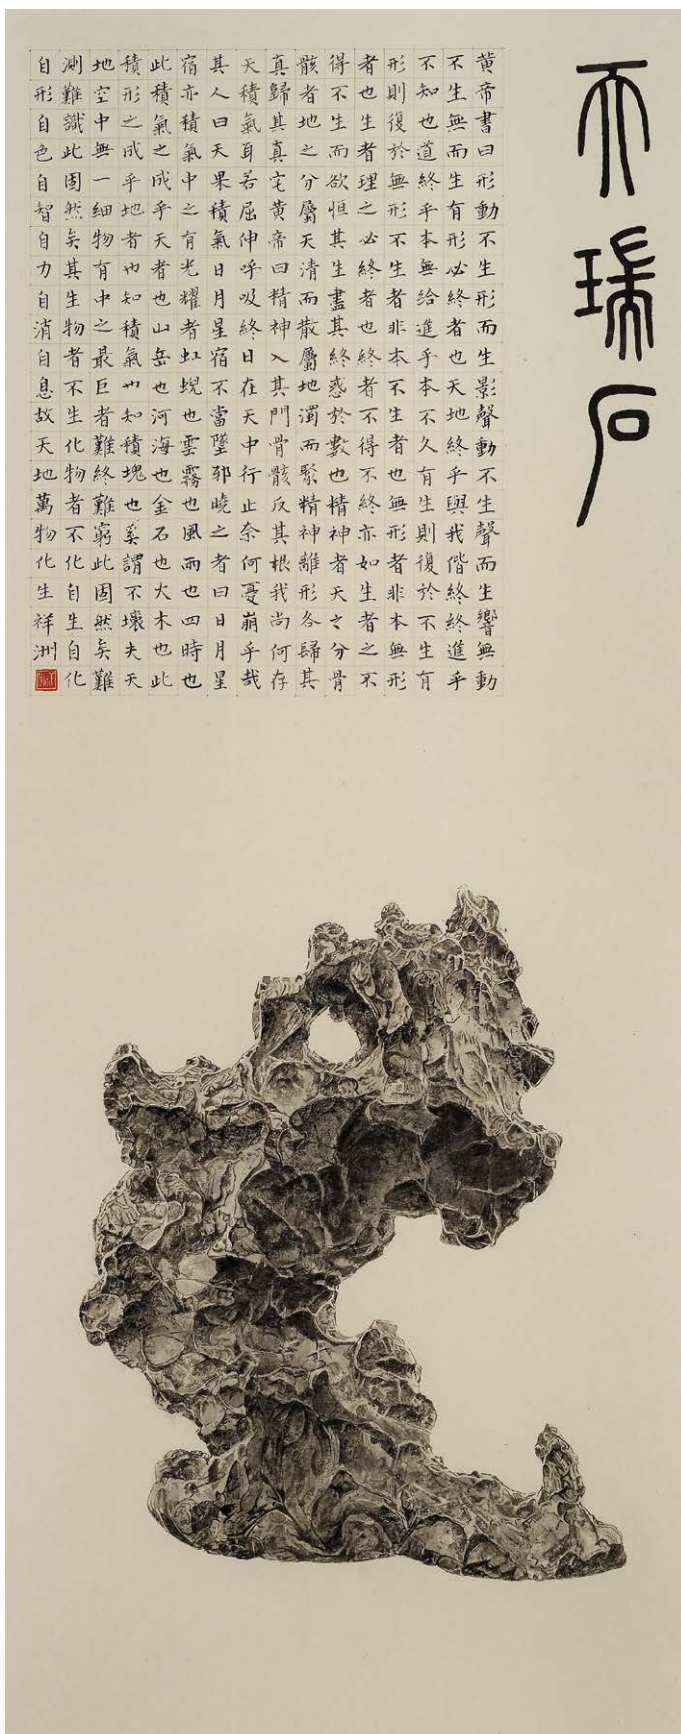 天瑞石
黃帝書曰形動不生形而生影聲動不生聲而生響無動
不生無而生有形必終者也天地終乎與我偕終終進乎
不知也道終乎本無給進乎本不久有生則復於不生有
形則復於無形不生者非本不生者也無形者非本無形
者也生者理之必終者也終者不得不終亦如生者之不
得不生而欲恒其生盡其終惑於數也精神者天之分骨
骸者地之分屬天清而散屬地濁而聚精神離形各歸其
真歸其真宅黃帝曰精神入其門骨骸反其根我尚何存
天積氣耳若屈伸呼吸終日在天中行止奈何憂崩乎哉
其人曰天果積氣日月星宿不當墜邪曉之者曰日月星
宿亦積氣中之有光耀者虹蜺也雲霧也風雨也四時也
此積氣之成乎天者也山岳也河海也金石也火木也此
積形之成乎地者也知積氣也知積塊也奚謂不壞夫天
地空中無一細物有中之最巨者難終難窮此固然矣難
測難識此固然矣其生物者不生化物者不化自生自化
自形自色自智自力自消自息故天地萬物化生祥洲